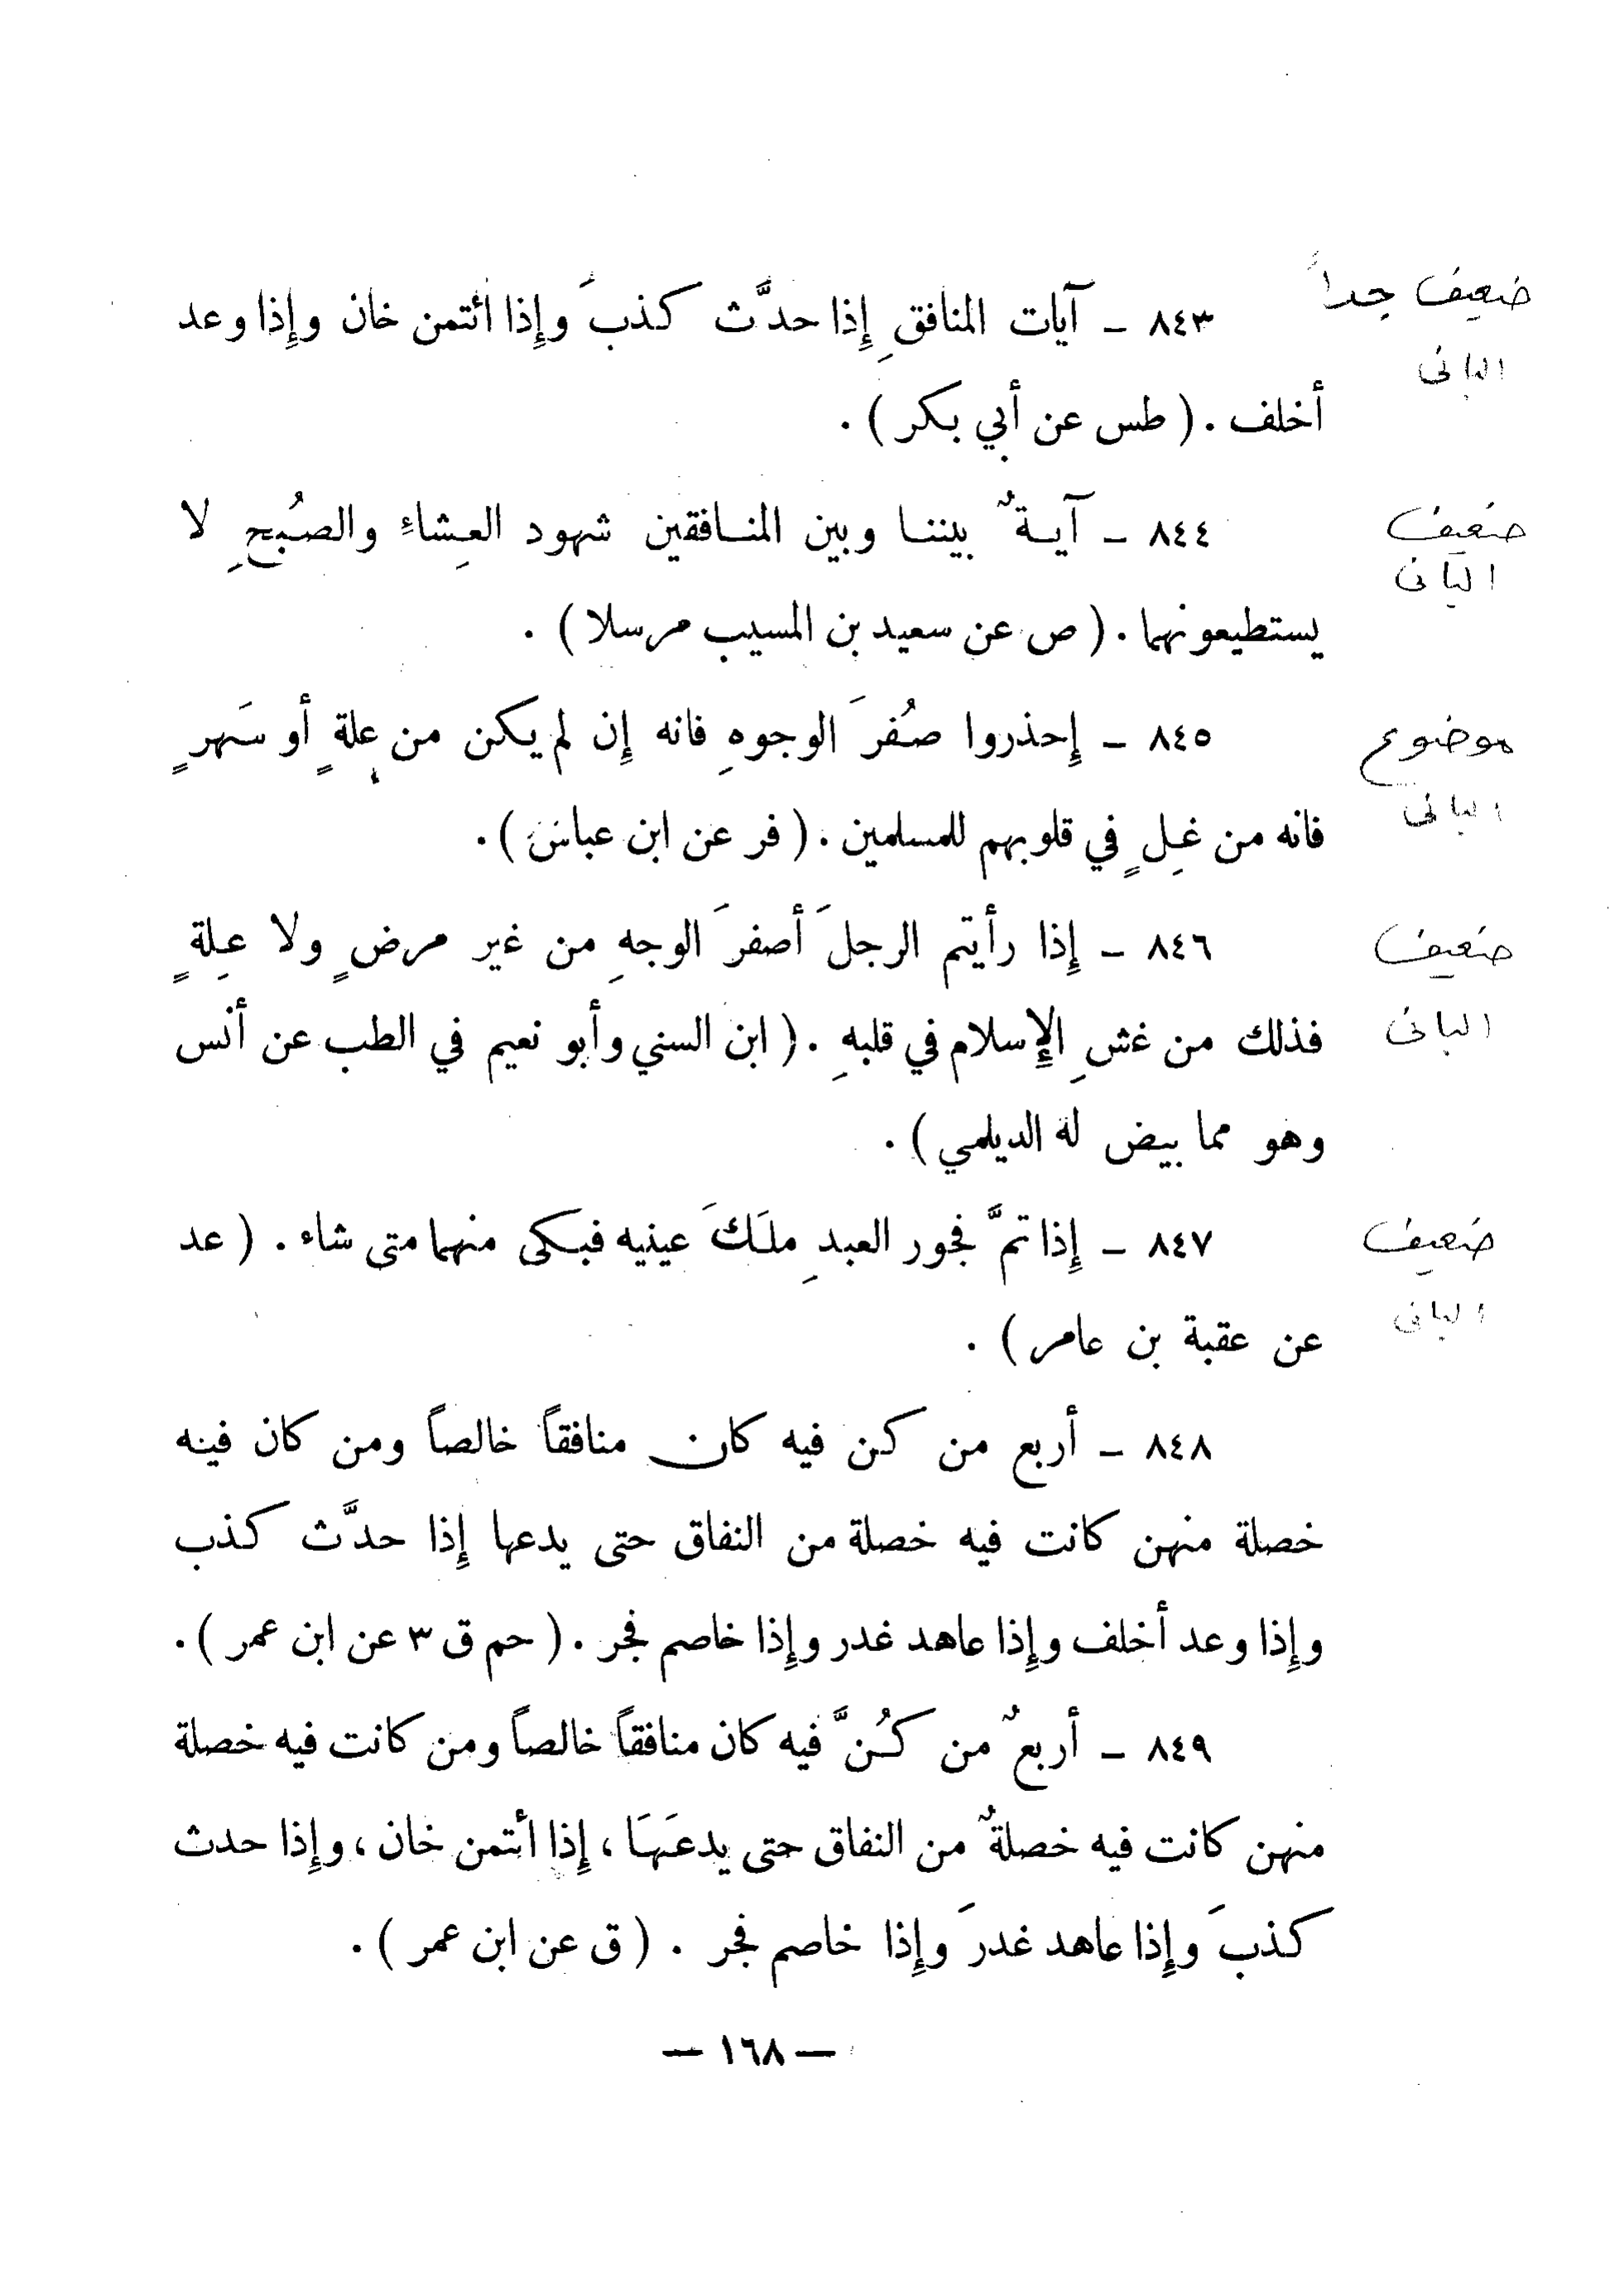 ضعيف جداً
٨٤٣ – آيات المنافقِ إِذا حدَّث كذبَ وإِذا ائتمن خان وإِذا وعد
البانى
أخلف . ( طس عن أبي بكر ) .
ضعيف
٨٤٤ – آيةٌ بيننا وبين المنافقين شهود العِشاءِ والصُبحِ لا
البانى
يستطيعونهما . ( ص عن سعيد بن المسيب مرسلا ) .
موضوع
٨٤٥ – إِحذروا صُفرَ الوجوهِ فانه إِن لم يكن من علةٍ أو سَهرٍ
البانى
فانه من غِلٍ في قلوبهم للمسلمين . ( فر عن ابن عباس ) .
ضعيف
٨٤٦ – إِذا رأيتم الرجلَ أصفرَ الوجهِ من غير مرضٍ ولا عِلةٍ
البانى
فذلك من غشِ الإِسلام في قلبهِ . ( ابن السني وأبو نعيم في الطب عن أنس
وهو مما بيض له الديلمي ) .
ضعيف
٨٤٧ – إِذا تمَّ فجور العبدِ ملَكَ عينيه فبكى منهما متى شاء . ( عد
البانى
عن عقبة بن عامر ) .
٨٤٨ – أربع من كن فيه كان منافقاً خالصاً ومن كان فيه
خصلة منهن كانت فيه خصلة من النفاق حتى يدعها إِذا حدَّث كذب
وإِذا وعد أخلف وإِذا عاهد غدر وإِذا خاصم فجر . ( حم ق ٣ عن ابن عمر ) .
٨٤٩ – أربعٌ من كُنَّ فيه كان منافقاً خالصاً ومن كانت فيه خصلة
منهن كانت فيه خصلةٌ من النفاق حتى يدعَهَا ، إِذا أئتمن خان ، وإِذا حدث
كذبَ وإِذا عاهد غدرَ وإِذا خاصم فجر . ( ق عن ابن عمر ) .
— ١٦٨ —